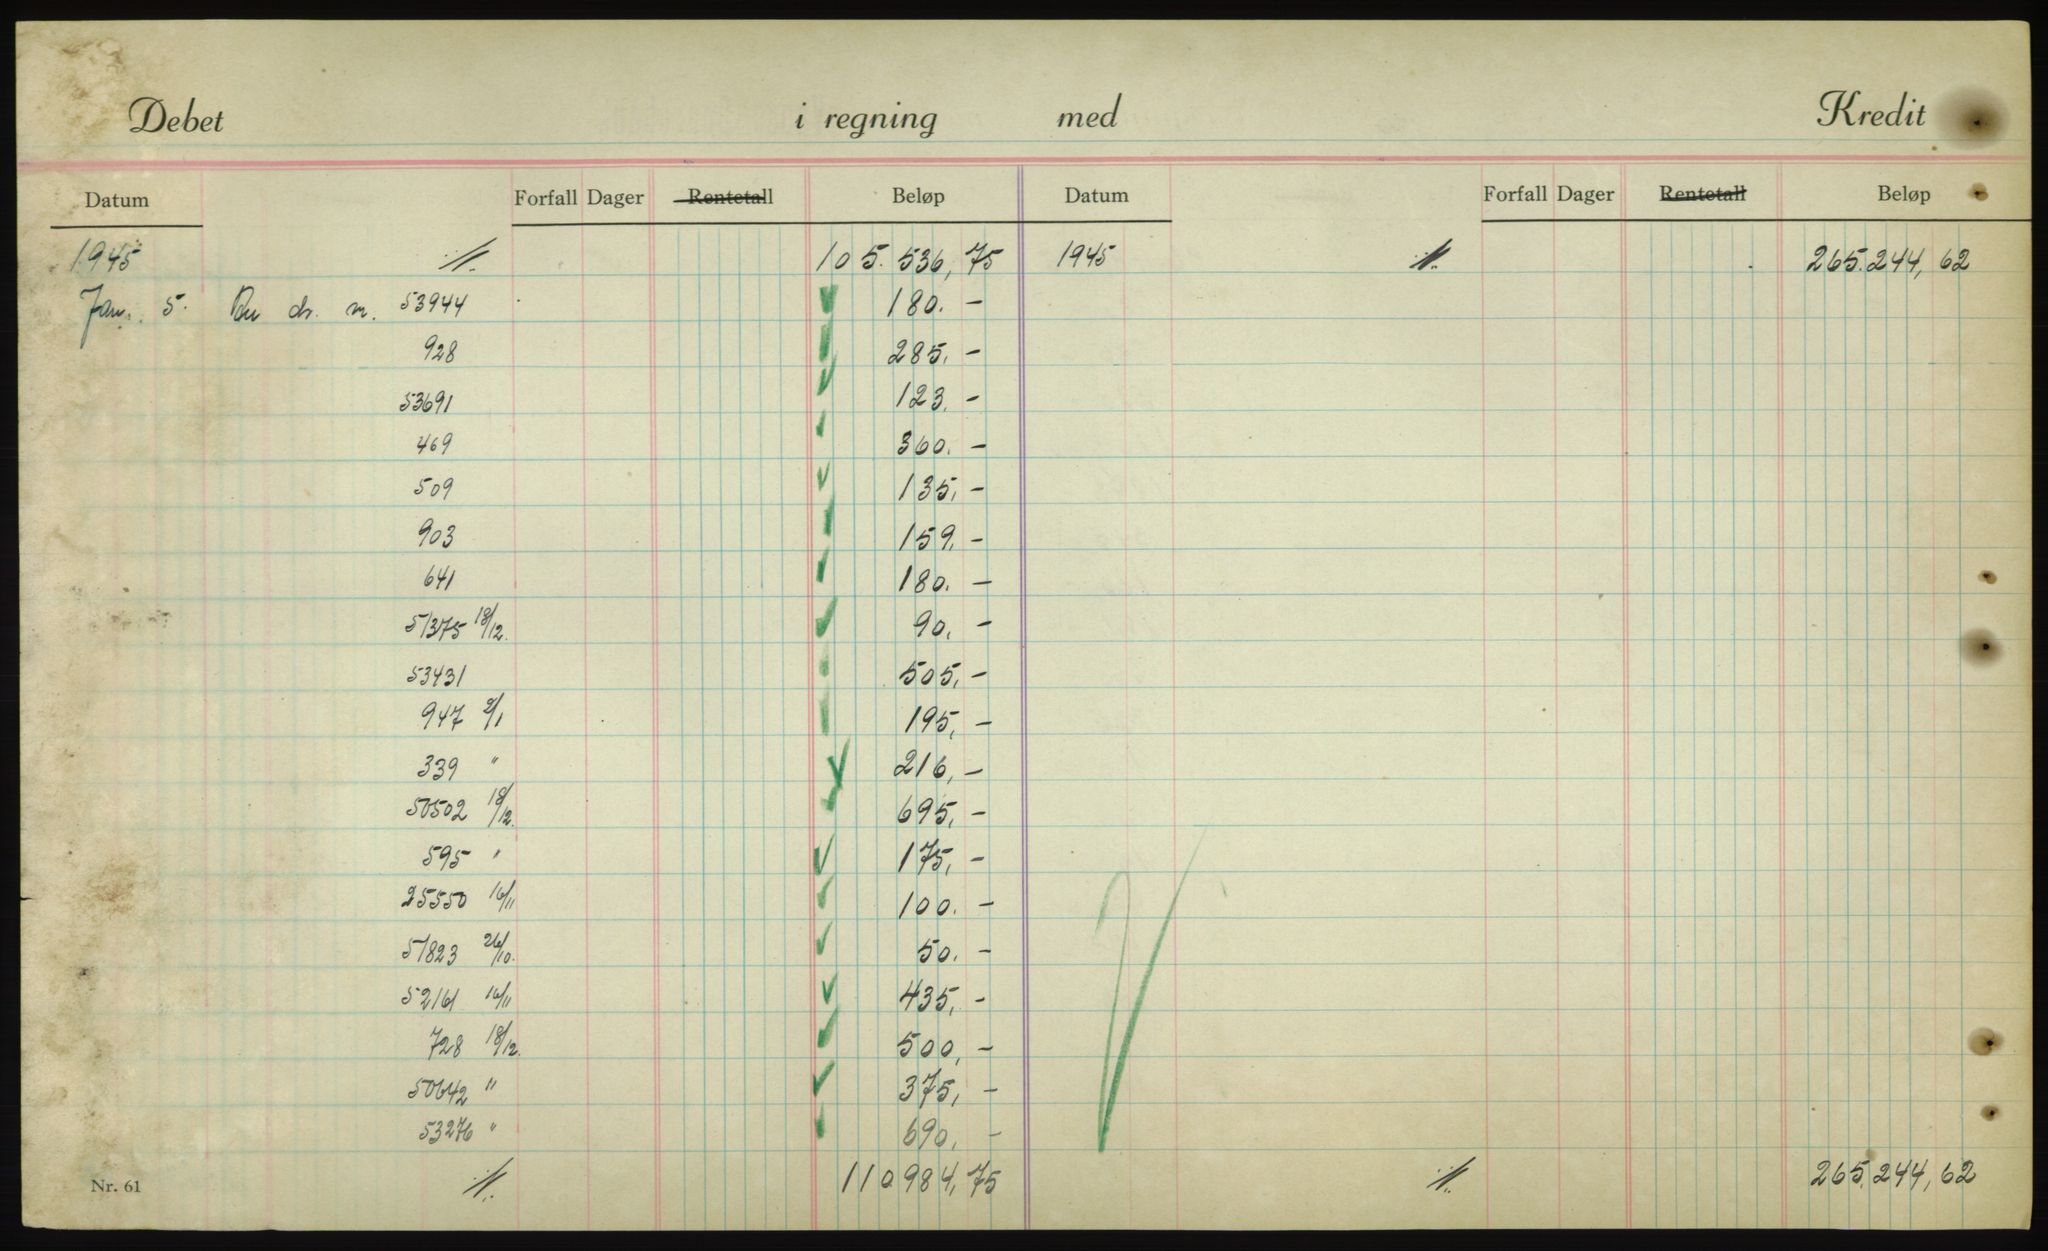 Debet i regning med Kredit
Datum Forfall Dager Rentetall Beløp Datum Forfall Dager Rentetall Beløp
1945 ·//. 105.536,75 1945 ·//. 265.244,62
Jan. 5. dr. m. 53944 180.-
928 285,-
53691 123.-
469 360.-
509 135,-
903 159.-
641 180.-
51375 18/12. 90.-
53431 505,-
947 2/1 195,-
339 " 216,-
50502 18/12. 695,-
595 " 175,-
25550 16/11 100.-
51823 26/10. 50.-
52161 16/11 435,-
728 18/12. 500,-
50642 " 375,-
53276 " 690,-
Nr. 61 ·//. 110984,75 ·//. 265.244,62